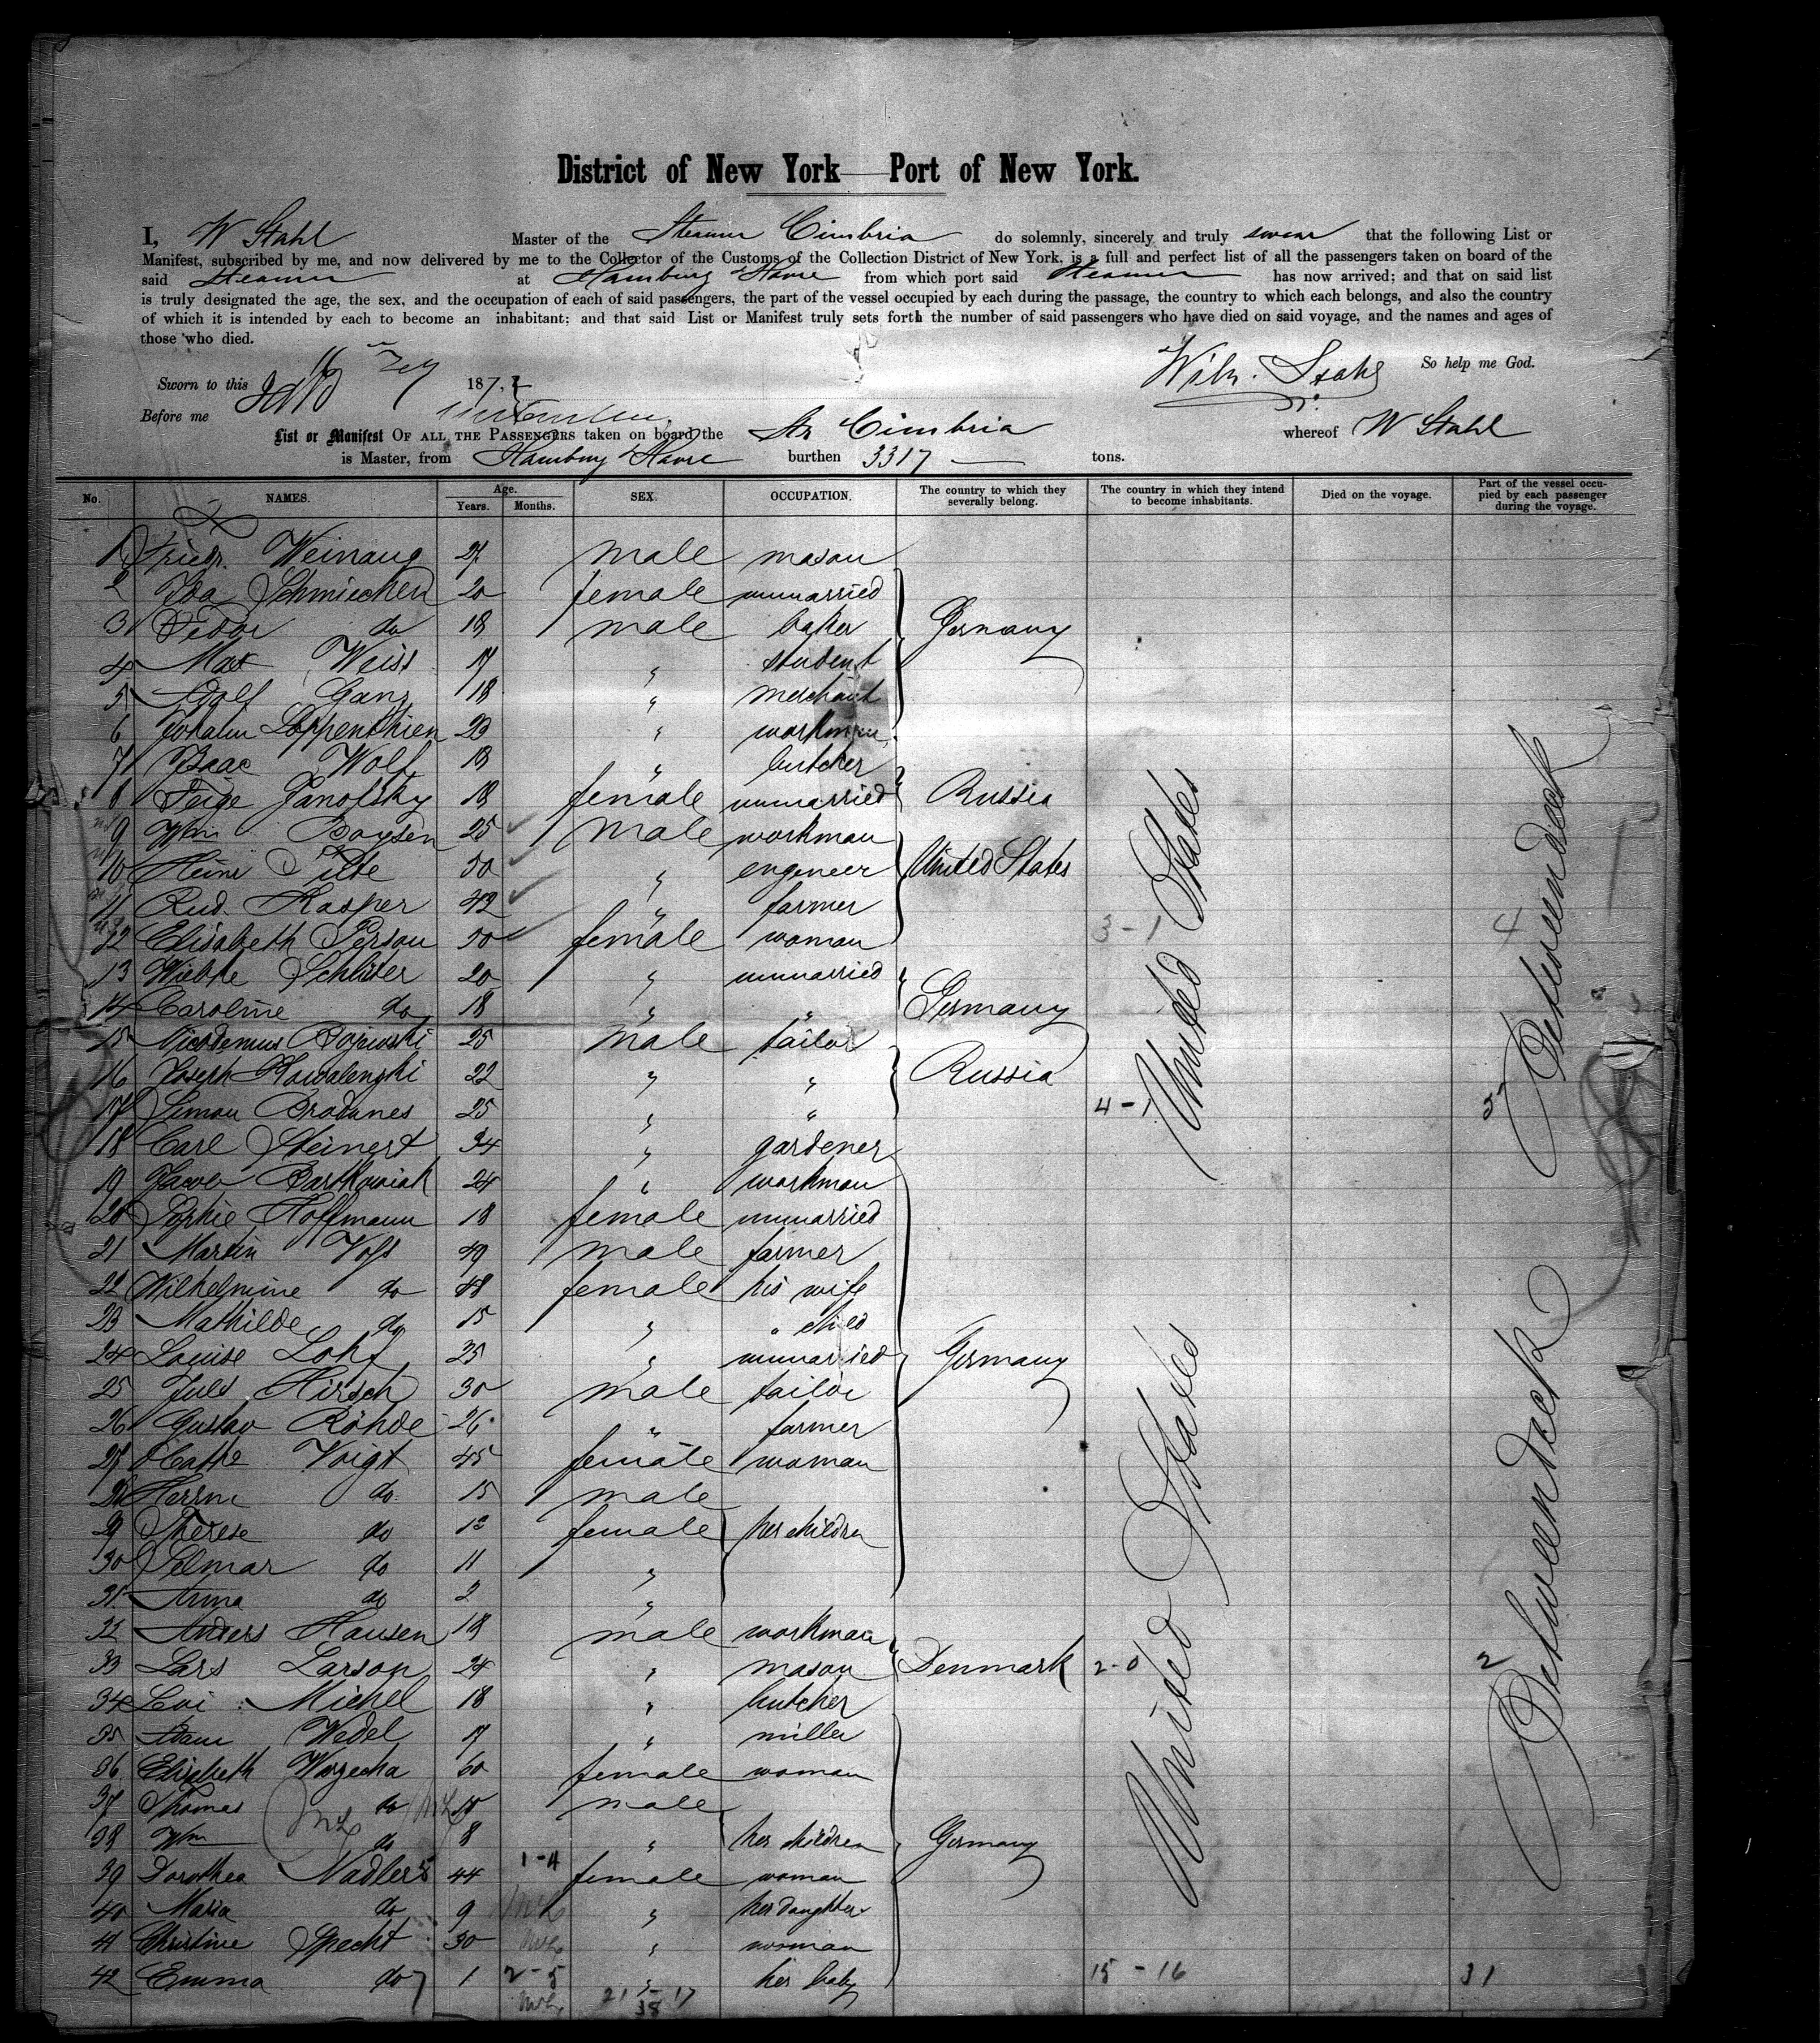 District of New York—Port of New York.
I, W Stahl Master of the Steamer Cimbria do solemnly, sincerely and truly swear that the following List or
Manifest, subscribed by me, and now delivered by me to the Collector of the Customs of the Collection District of New York, is a full and perfect list of all the passengers taken on board of the
said Steamer at Hamburg & Havre from which port said Steamer has now arrived; and that on said list
is truly designated the age, the sex, and the occupation of each of said passengers, the part of the vessel occupied by each during the passage, the country to which each belongs, and also the country
of which it is intended by each to become an inhabitant; and that said List or Manifest truly sets forth the number of said passengers who have died on said voyage, and the names and ages of
those who died.
So help me God.
Sworn to this 187
Wilh. Stahl
Before me
List or Manifest OF ALL THE PASSENGERS taken on board the Str Cimbria whereof W Stahl
is Master, from Hamburg & Havre burthen 3317 tons.
No. NAMES. Age. Years. Months. SEX. OCCUPATION. The country to which they severally belong. The country in which they intend to become inhabitants. Died on the voyage. Part of the vessel occupied by each passenger during the voyage.
1 Friedr. Weinaug 27 male mason
2 Ida Schmiechen 20 female unmarried
3 Fedor do 18 male baker Germany
4 Max Weiss 17 " student
5 Adolf Ganz 18 " merchant
6 Johann Loppenthien 23 " workman
7 Isaac Wolf 18 " butcher
8 Feige Janofsky 18 female unmarried Russia
9 Wm Boysen 25 male workman
10 Heinr Tilde 50 " engeneer United States
11 Rud. Kasper 42 " farmer
12 Elisabeth Person 50 female woman 3-1 United States 4 Betweendeck
13 Wiebke Schlüter 20 " unmarried
14 Caroline do 18 " " Germany
15 Nicodemus Bojewski 25 male tailor
16 Joseph Kowalenski 22 " " Russia
17 Simon Brodanes 25 " " 4-1 5
18 Carl Steinert 34 " gardener
19 Jacob Bartkowiak 24 " workman
20 Sophie Hoffmann 18 female unmarried
21 Martin Voss 49 male farmer
22 Wilhelmine do 48 female his wife
23 Mathilde do 15 " " child
24 Louise Lohf 25 " unmarried Germany
25 Jules Hirsch 30 male tailor
26 Gustav Röhde 26 " farmer
27 Kathe Voigt 45 female woman
28 Herrm do 15 male
29 Therese do 13 female her children
30 Selmar do 11 "
31 Anna do 2 "
32 Anders Hansen 18 male workman
33 Lars Larson 24 " mason Denmark 2-0 United States 2 Betweendeck
34 Levi Michel 18 " butcher
35 Adam Wedel 17 " miller
36 Elisabeth Wozecha 60 female woman
37 Thomas do 10 male
38 Wm do 8 " her children Germany
39 Dorothea Nadler 44 1-4 female woman
40 Maria do 9 " her daughter
41 Christine Specht 30 " woman
42 Emma do 1 2-5 " her baby 15-16 31
21 - 17
38